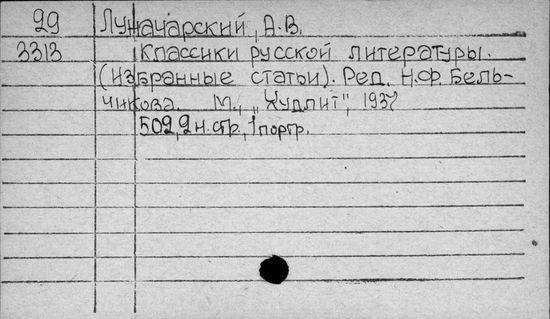 29 Луначарский, А.В.
3313 Классики русской литературы.
(Избранные статьи). Ред. Н.Ф. Бель-
чикова. М., "Худлит", 1937
502,2 н. стр., 1 портр.